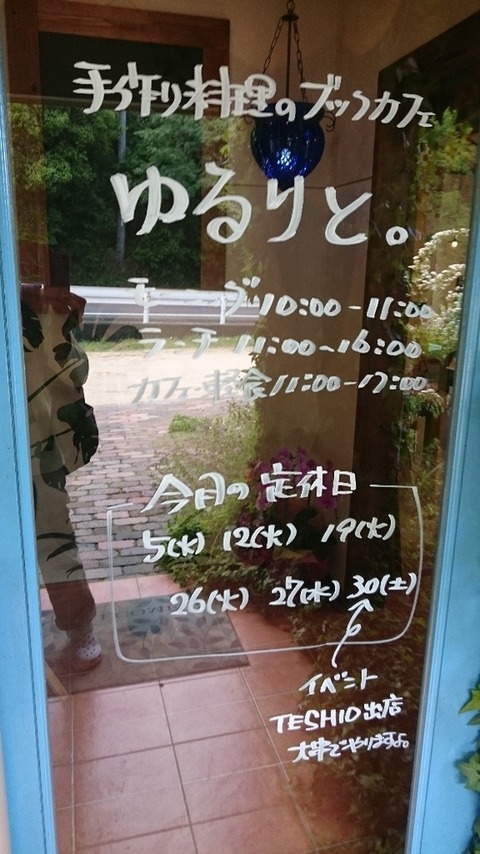 手作り料理のブックカフェ
ゆるりと。
モーニング 10:00-11:00
ランチ 11:00~16:00
カフェ・軽食 11:00-17:00
今月の定休日
5(火) 12(火) 19(火)
26(火) 27(水) 30(土)
イベント
TESHIO出店
大串でやりますよ。